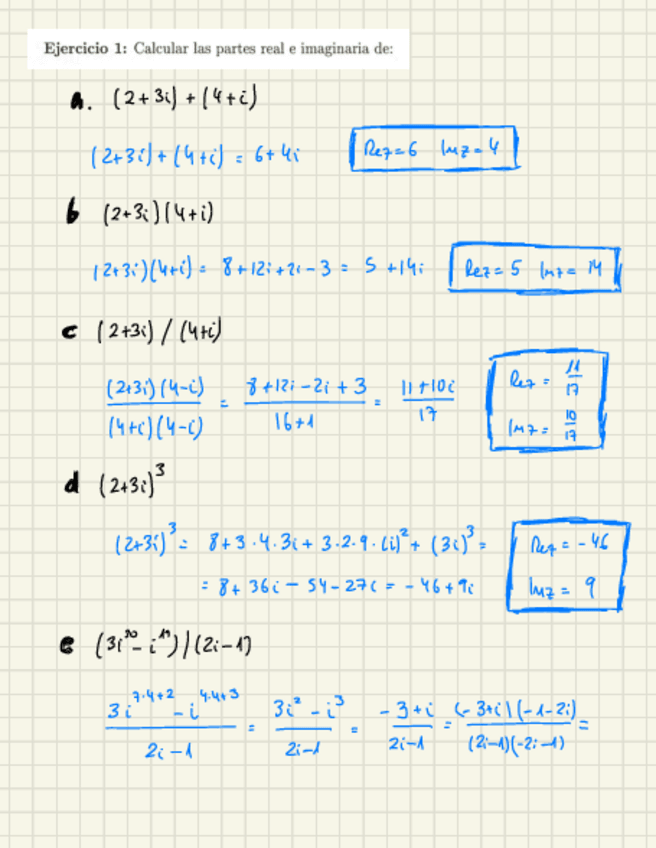 Ejercicio 1: Calcular las partes real e imaginaria de:
a. (2+3i)+(4+i)
(2+3i)+(4+i) = 6+4i   Rez=6   Imz=4
b (2+3i)(4+i)
(2+3i)(4+i) = 8+12i+2i-3 = 5+14i   Rez=5   Imz=14
c (2+3i)/(4+i)
(2+3i)(4-i)/(4+i)(4-i) = 8+12i-2i+3/16+1 = 11+10i/17   Rez = 11/17   Imz = 10/17
d (2+3i)³
(2+3i)³ = 8+3·4·3i+3·2·9·(i)²+(3i)³ =   Rez = -46
= 8+36i-54-27i = -46+9i   Imz = 9
e (3i³⁰-i¹⁹)/(2i-1)
3i^7·4+2 - i^4·4+3/2i-1 = 3i²-i³/2i-1 = -3+i/2i-1 = (-3+i)(-1-2i)/(2i-1)(-2i-1) =